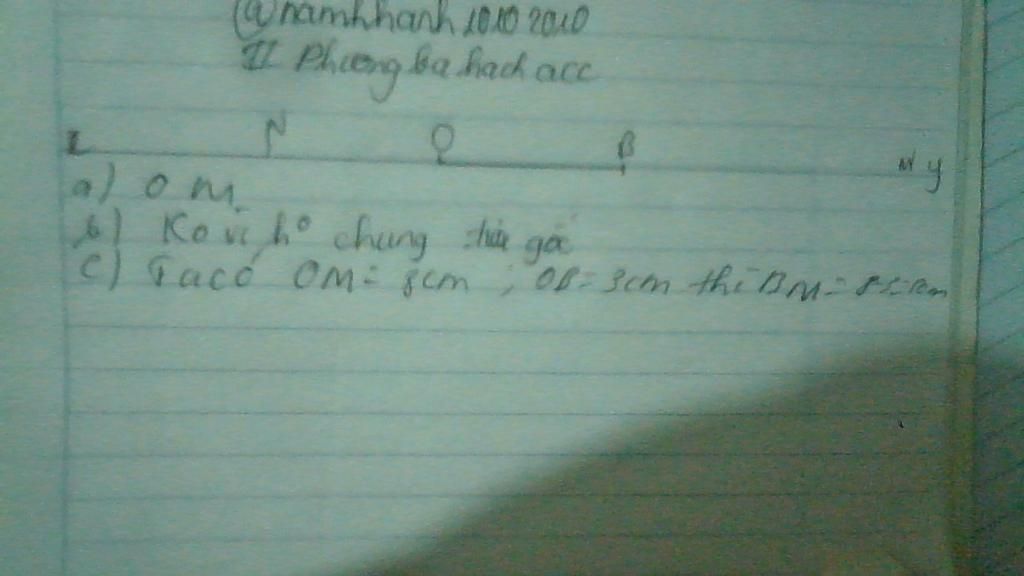 @namkhanh10102010
II Phương ba hach acc
N O B M y
a) O M
b) Ko vì ko chung gốc
c) Ta có OM = 8cm ; OB = 3cm thì BM =